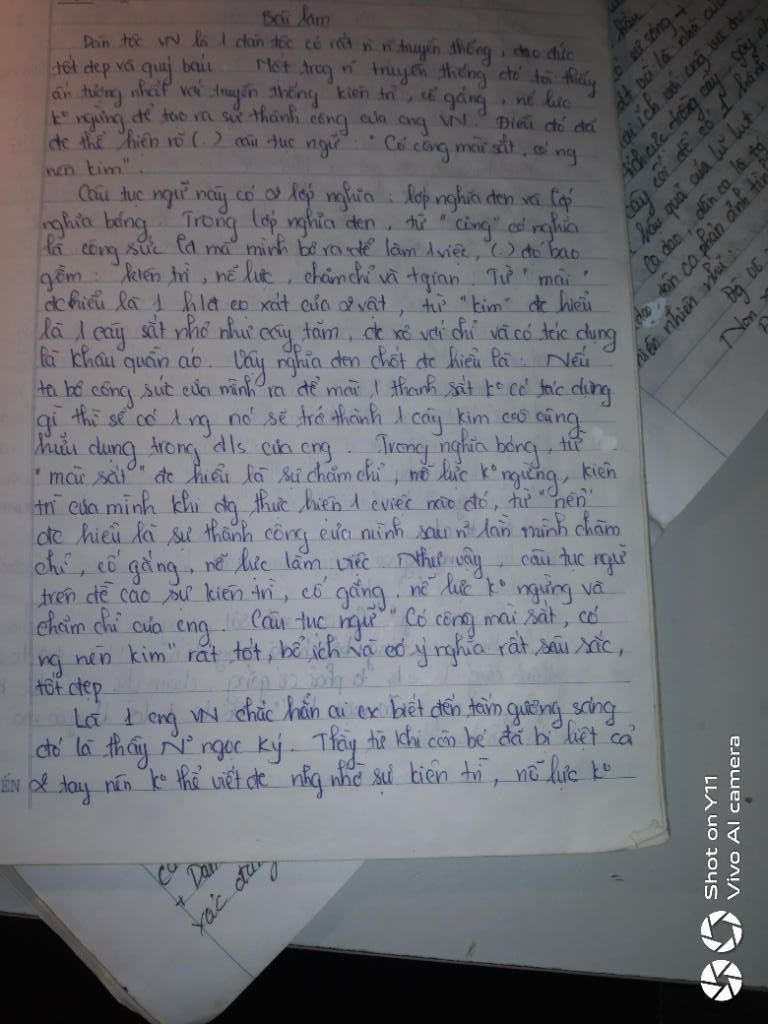 Bài làm
Dân tộc VN là 1 dân tộc có rất n n truyền thống, đạo đức
tốt đẹp và quý báu. Một trog n truyền thống đó tôi thấy
ấn tượng nhất với truyền thống kiên trì, cố gắng, nổ lực
k° ngừng để tạo ra sự thành công của cng VN. Điều đó đã
đc thể hiện rõ (.) câu tục ngữ: "Có công mài sắt, có ng
nên kim".
Câu tục ngữ này có 2 lớp nghĩa: lớp nghĩa đen và lớp
nghĩa bóng. Trong lớp nghĩa đen, từ "công" có nghĩa
là công sức lđ mà mình bỏ ra để làm 1 việc, (.) đó bao
gồm: kiên trì, nổ lực, chăm chỉ và tgian. Từ "mài"
đc hiểu là 1 hđ cọ xát của 2 vật, từ "kim" đc hiểu
là 1 cây sắt nhỏ như cây tăm, đc xỏ với chỉ và có tác dụng
là khâu quần áo. Vậy nghĩa đen chốt đc hiểu là: Nếu
ta bỏ công sức của mình ra để mài 1 thanh sắt k° có tác dụng
gì thì sẽ có 1 ng nó sẽ trở thành 1 cây kim cũng
hữu dụng trong đ/s của cng. Trong nghĩa bóng, từ
"mài sắt" đc hiểu là sự chăm chỉ, nổ lực k° ngừng, kiên
trì của mình khi đg thực hiện 1 cviệc nào đó, từ "nên"
đc hiểu là sự thành công của mình sau n lần mình chăm
chỉ, cố gắng, nổ lực làm việc Như vậy, câu tục ngữ
trên đề cao sự kiên trì, cố gắng, nổ lực k° ngừng và
chăm chỉ của cng. Câu tục ngữ "Có công mài sắt, có
ng nên kim" rất tốt, bổ ích và có ý nghĩa rất sâu sắc,
tốt đẹp
Là 1 cng VN chắc hẳn ai cx biết đến tấm gương sáng
đó là thầy N° ngọc Ký. Thầy từ khi còn bé đã bị liệt cả
2 tay nên k° thể viết đc nhg nhờ sự kiên trì, nổ lực k°
Shot on Y11
Vivo AI camera